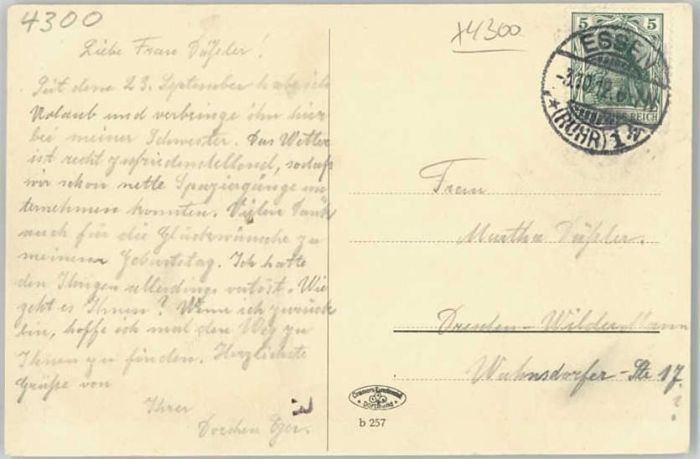 4300
x4300
Liebe Frau Däßler!
Seit dem 23. September hab ich
Urlaub und verbringe ihn hier
bei meiner Schwester. Das Wetter
ist recht zufriedenstellend, sodaß
wir schon nette Spaziergänge un
ternehmen konnten. Vielen Dank
auch für die Glückwünsche zu
meinem Geburtstag. Ich hatte
den Ihrigen allerdings Wie
geht es Ihnen? Wenn ich zurück
bin, hoffe ich mal den Weg zu
Ihnen zu finden. Herzlichste
Grüße von
Ihrer
Dorchen
5 5
ESSEN
(RUHR) 1
REICH
Frau
Martha Däßler.
Dresden-Wilder Mann
Wahnsdorfer-Str 17
Dortmund
b 257